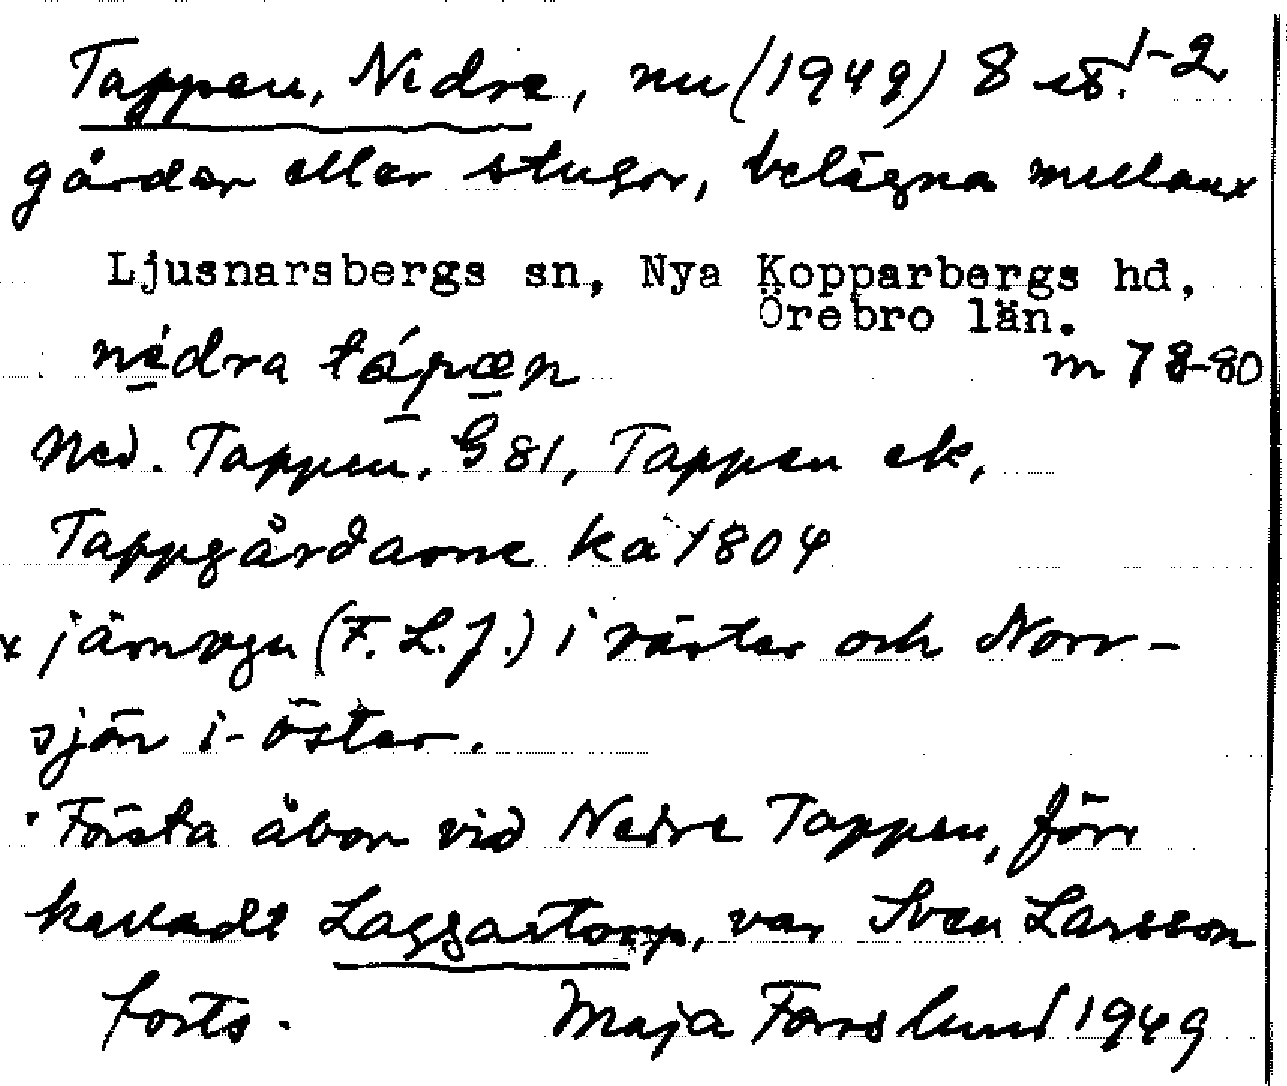 Tappen, Nedre, nu (1949) 8 st. 1-2
gårdar eller stugor, belägna mellan x
Ljusnarsbergs sn, Nya Kopparbergs hd,
Örebro län.
nédra tápæn m 78-80
Ned. Tappen, G 81, Tappen ek,
Tappgårdarne ka 1804
x järnvgn (F. L. J.) i väster och Norr-
sjön i öster.
Första åbon vid Nedre Tappen, förr
kalladt Laggartorp, var Sven Larsson
forts. Maja Forsslund 1949